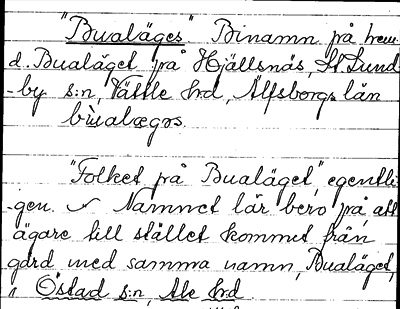 "Bualäges". Binamn på hem.
d. Bualäget på Hjällsnäs, St. Lund
-by s:n, Vättle hd, Älfsborgs län
bùalægəs.
"Folket på Bualäget," egentli
-gen. Namnet lär bero på, att
ägare till stället kommet från
gård med samma namn, Bualäget,
i Östad s:n, Ale hd.